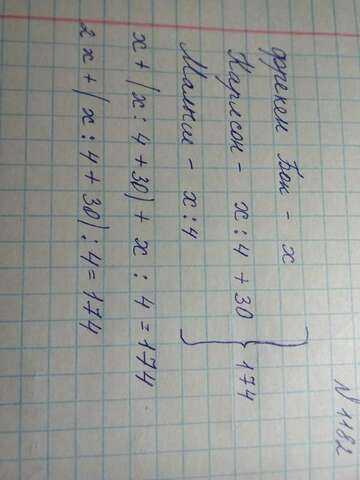 N 1182
Фрекен Бок - x
Карлсон - x : 4 + 30 } 174
Малыш - x : 4
x + (x : 4 + 30) + x : 4 = 174
2x + (x : 4 + 30) : 4 = 174